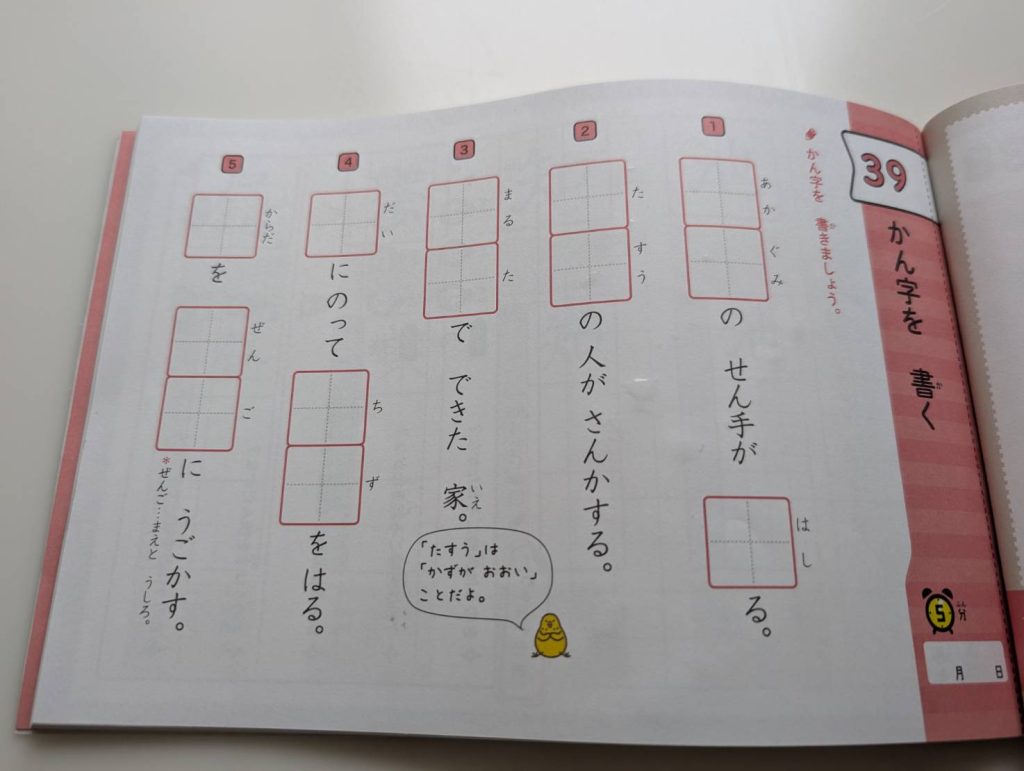 39
かん字を 書く
か
かん字を 書きましょう。
か
1
あかぐみ
の せん手が
はし
る。
2
たすう
の 人が さんかする。
3
まるた
で できた 家。
いえ
「たすう」は
「かずが おおい」
ことだよ。
4
だい
にのって
ちず
を はる。
5
からだ
を
ぜんご
に うごかす。
*ぜんご…まえと うしろ。
5分
月 日